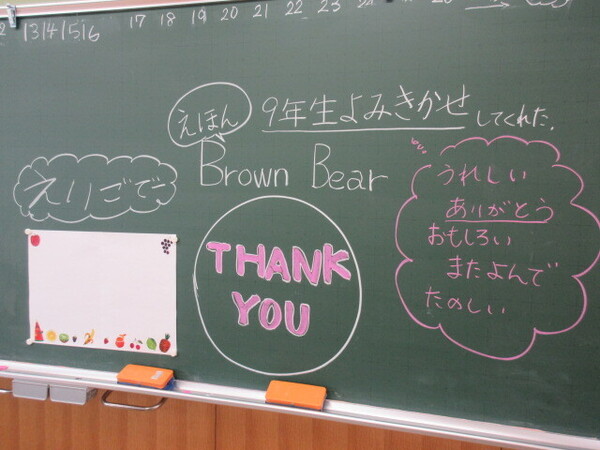 13 14 15 16 17 18 19 20 21 22 23
えほん
9年生よみきかせしてくれた。
Brown Bear
えいごで
THANK
YOU
うれしい
ありがとう
おもしろい
またよんで
たのしい